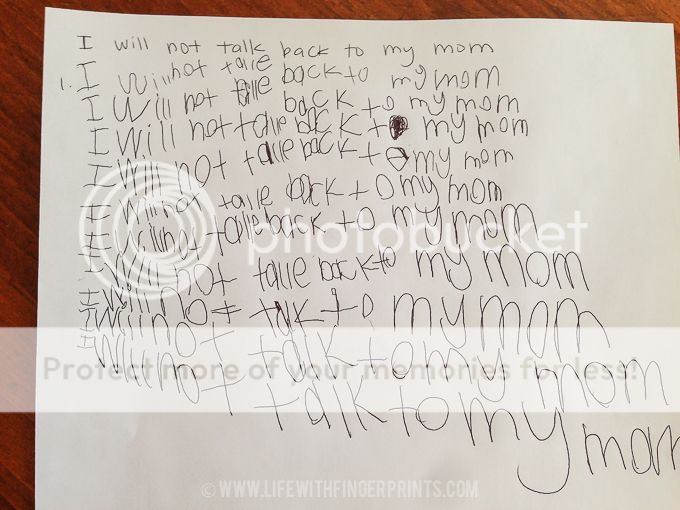 I will not talk back to my mom
1. I Will not talle back to my mom
I Will not talle back to my mom
I Will not talle back to my mom
I Will not talle back to my mom
I Will not talle back to my mom
I Will not talle back to my mom
photobucket
I Will not talle back to my mom
I Will not talk to my mom
I Will not talk to my mom
Protect more of your memories for less!
I Will not talk to my mom
© WWW.LIFEWITHFINGERPRINTS.COM